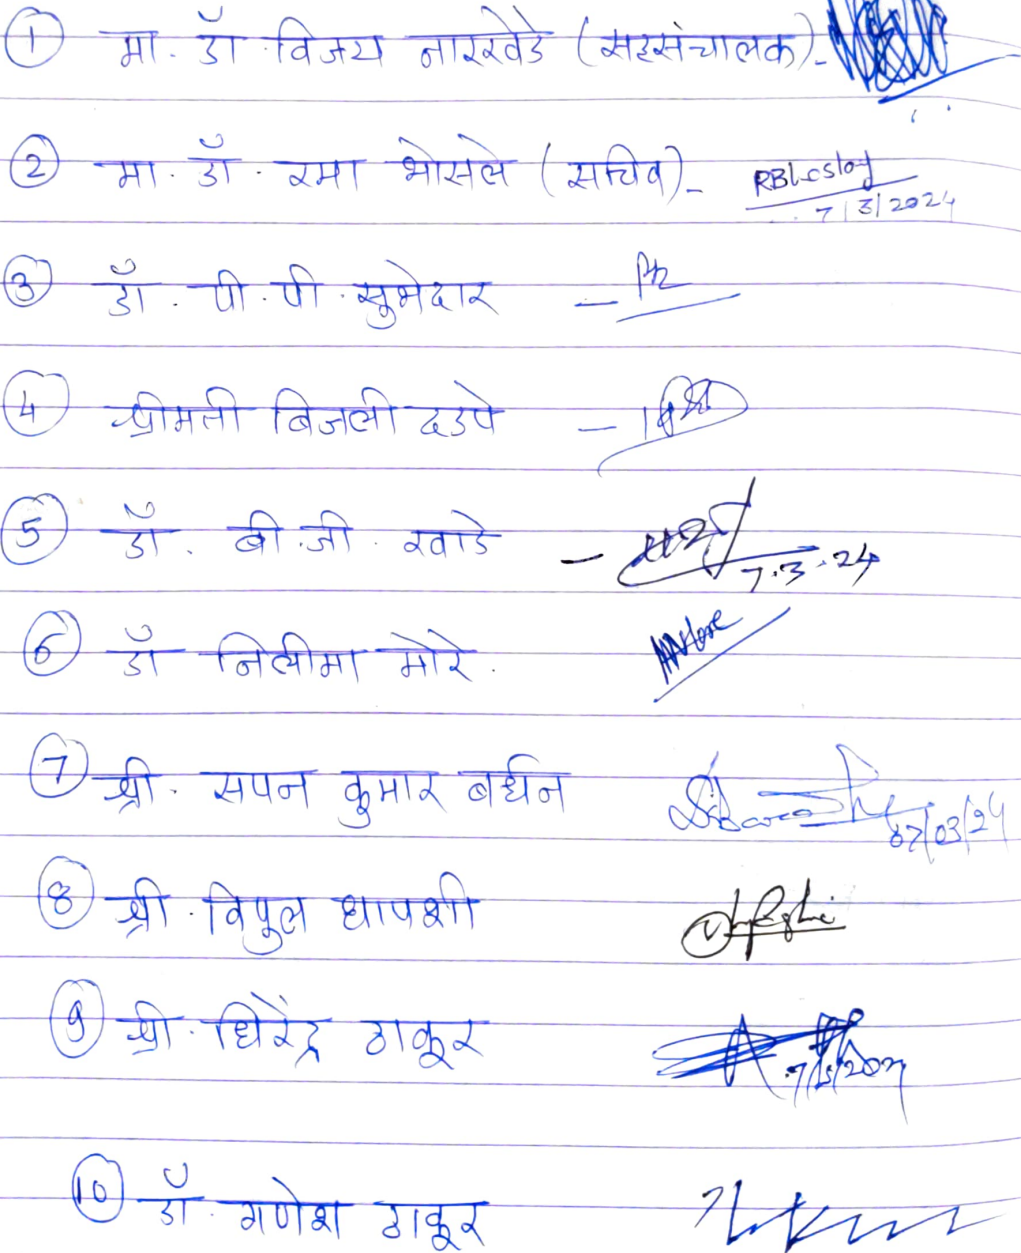 ① मा. डॉ. विजय नारखेडे (सहसंचालक)-
② मा. डॉ. रमा भोसले (सचिव)- RBhosley
7/3/2024
③ डॉ. पी. पी. सुभेदार -
④ श्रीमती बिजली दडपे -
⑤ डॉ. बी. जी. खाडे - 7.3.24
⑥ डॉ निलीमा मोरे.
⑦ श्री. सपन कुमार बर्धन 07/03/24
⑧ श्री. विपुल धापशी
⑨ श्री. धिरेंद्र ठाकूर
⑩ डॉ. गणेश ठाकूर